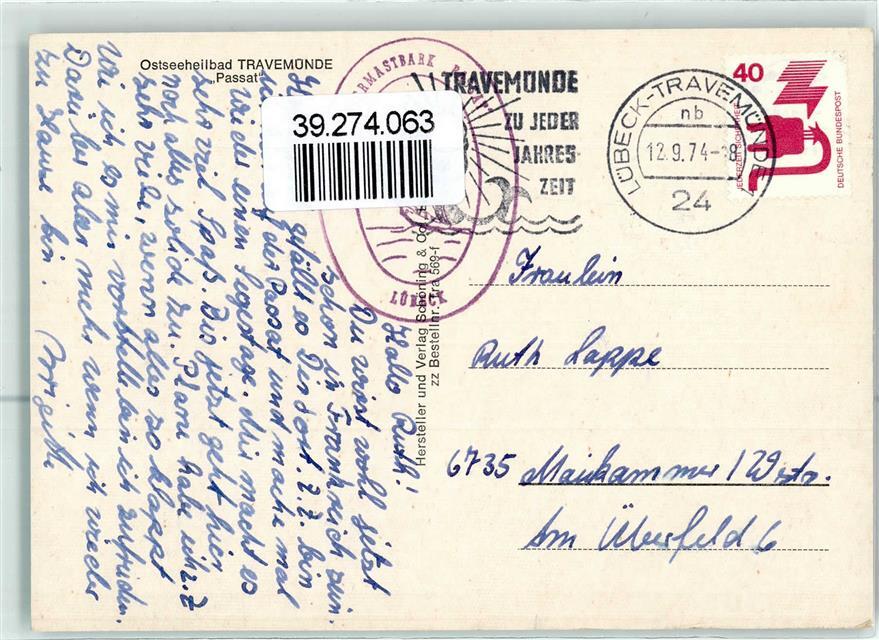 Ostseeheilbad TRAVEMÜNDE
„Passat“
39.274.063
LÜBECK
TRAVEMÜNDE
ZU JEDER
JAHRES-
ZEIT
LÜBECK-TRAVEMÜNDE
nb
12.9.74-18
24
40
JEDERZEIT SICHERHEIT
DEUTSCHE BUNDESPOST
Hersteller und Verlag Schöning & Co
zz Bestellnr. Tra 569-f
Hallo Ruth!
Du wirst wohl jetzt
schon in Frankreich sein.
gefällt es Dir dort. Z.Z. bin
auf der Passat und mache mal
wieder einen Segeltage. Mir macht es
sehr viel Spaß. Bis jetzt geht hier
noch alles solide zu. Pläne habe ich z.Z
sehr viele, wenn alles so klappt
wie ich es mir vorstelle bin ich zufrieden.
Darüber aber mehr wenn ich wieder
zu Hause bin. Brigitte
Fräulein
Ruth Lappe
6735 Maikammer / Wstr.
Am Überfeld 6